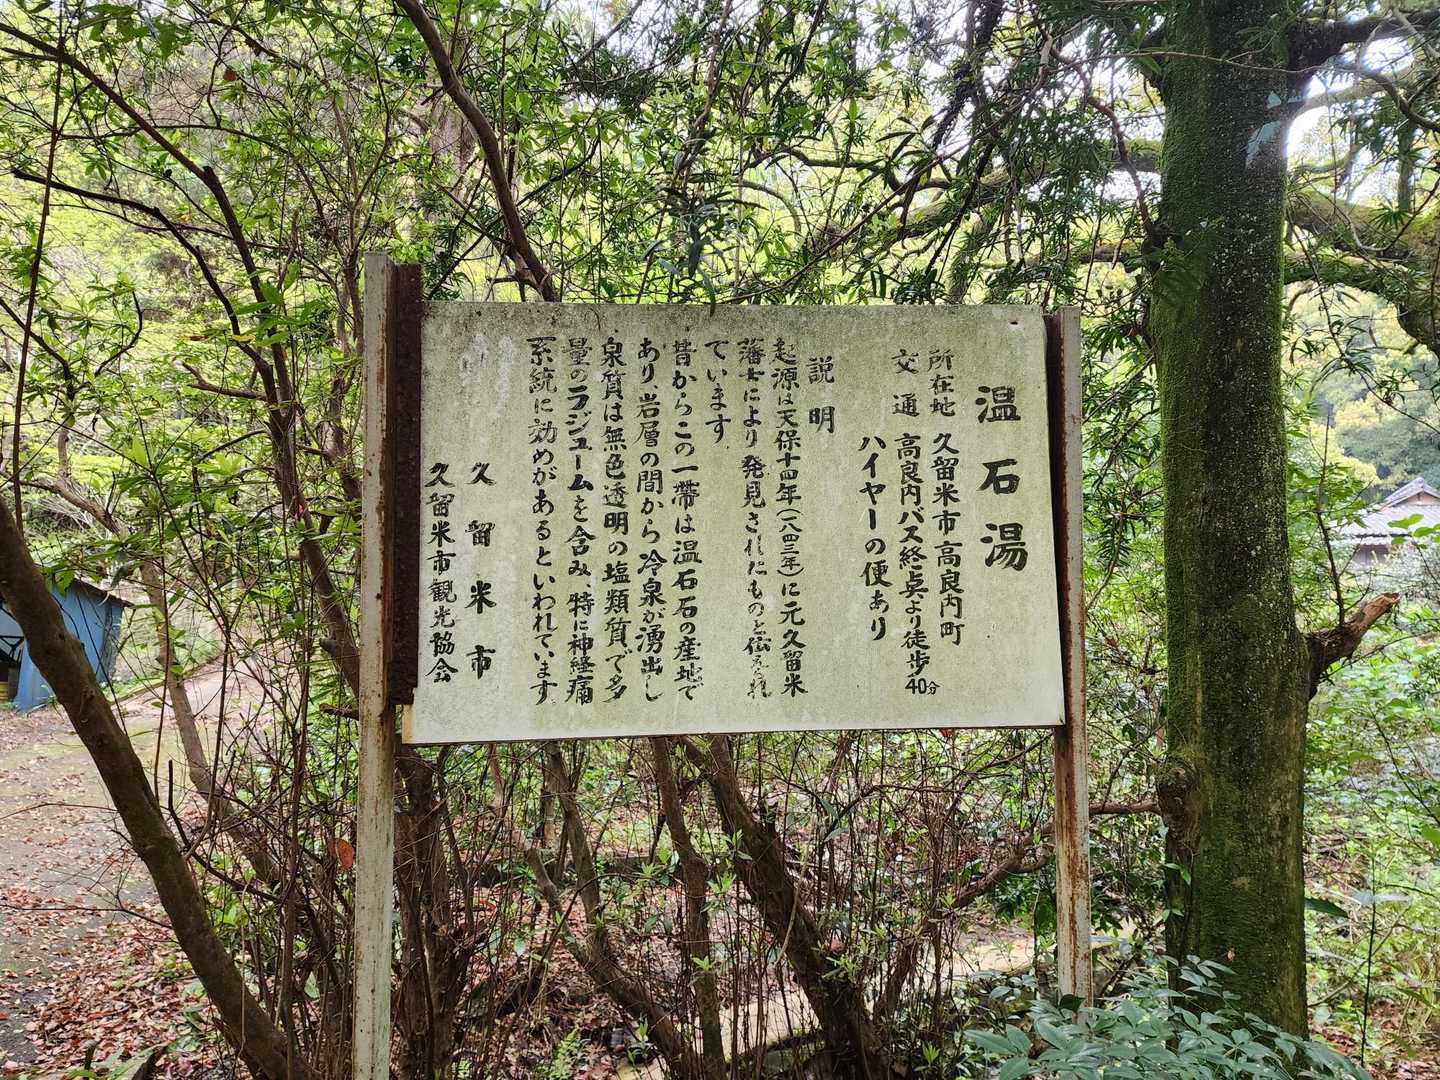 温石湯
所在地 久留米市高良内町
交通 高良内バス終点より徒歩40分
ハイヤーの便あり
説明
起源は天保十四年(一八四三年)に元久留米
藩士により発見されたものと伝えられ
ています
昔からこの一帯は温石石の産地で
あり、岩層の間から冷泉が湧出し
泉質は無色透明の塩類質で多
量のラジュームを含み、特に神経痛
系統に効めがあるといわれています
久留米市
久留米市観光協会